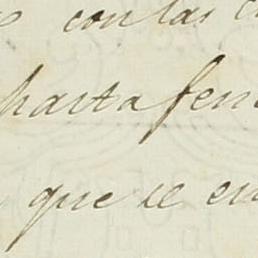 con las
hasta fen
que se en